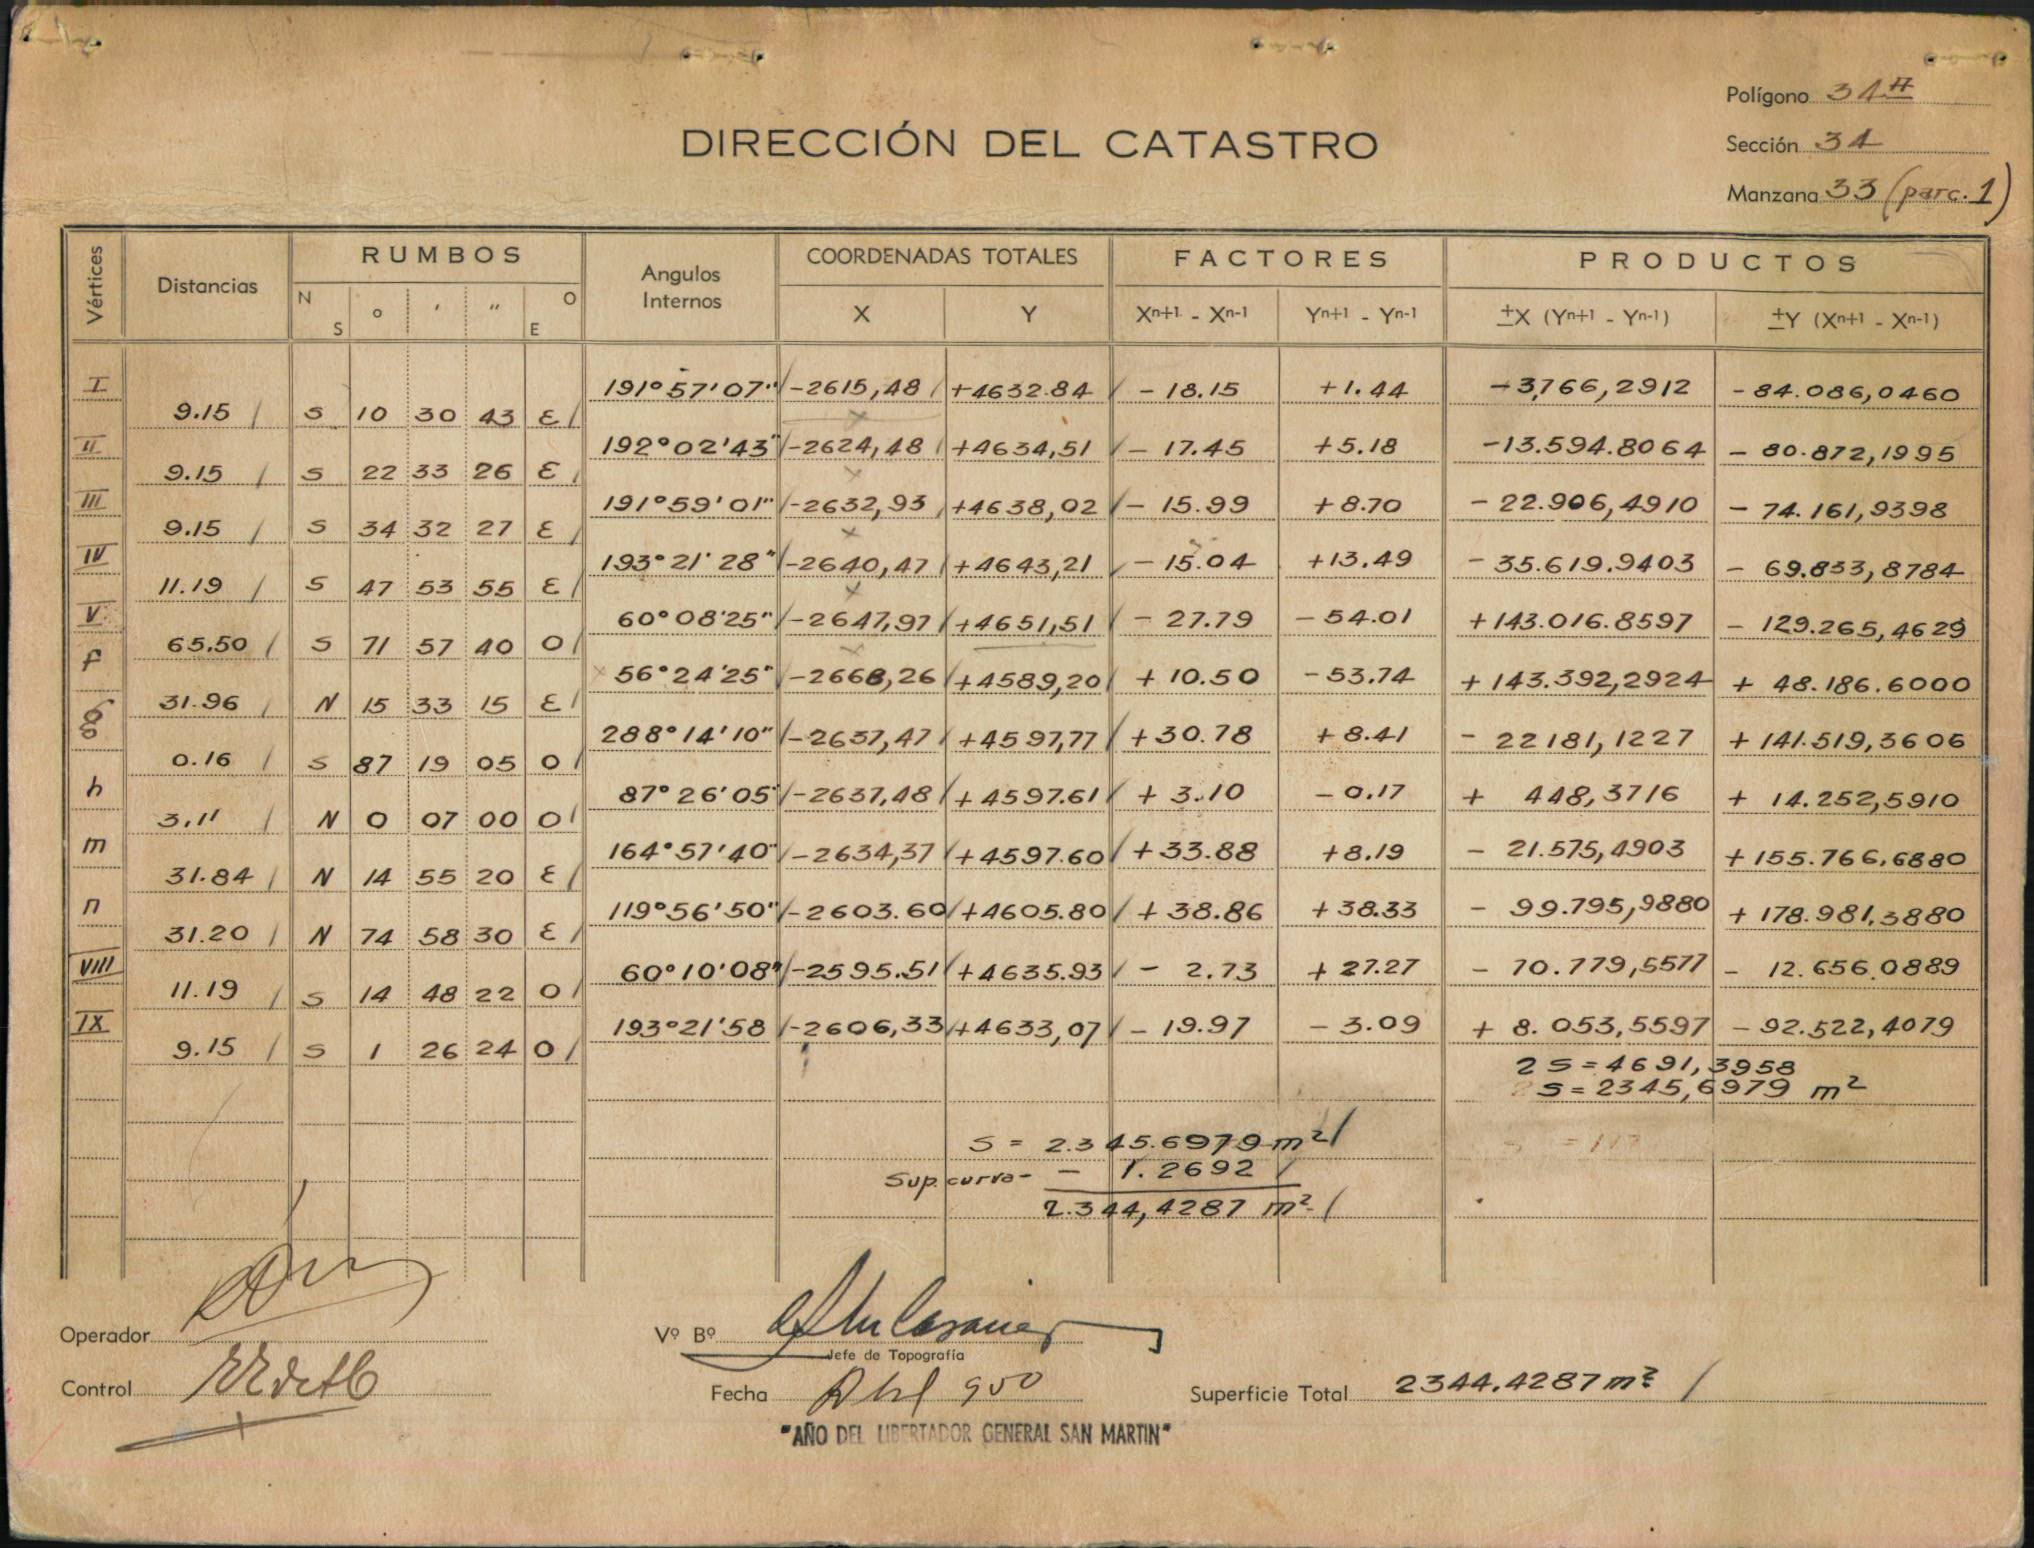 Polígono 34H
DIRECCIÓN DEL CATASTRO
Sección 34
Manzana 33 (parc. 1)
Vértices Distancias RUMBOS Angulos Internos COORDENADAS TOTALES FACTORES PRODUCTOS
N S ° ' " O E X Y Xn+1 - Xn-1 Yn+1 - Yn-1 ±X (Yn+1 - Yn-1) ±Y (Xn+1 - Xn-1)
I 191° 57' 07" -2615,48 +4632.84 - 18.15 +1.44 -3,766,2912 -84.086,0460
9.15 S 10 30 43 E
II 192° 02' 43" -2624,48 +4634,51 - 17.45 +5.18 -13.594.8064 - 80.872,1995
9.15 S 22 33 26 E
III 191° 59' 01" -2632,93 +4638,02 - 15.99 +8.70 - 22.906,4910 - 74.161,9398
9.15 S 34 32 27 E
IV 193° 21' 28" -2640,47 +4643,21 - 15.04 +13.49 - 35.619.9403 - 69.833,8784
11.19 S 47 53 55 E
V 60° 08' 25" -2647,97 +4651,51 - 27.79 - 54.01 +143.016.8597 - 129.265,4629
65.50 S 71 57 40 O
f 56° 24' 25" -2668,26 +4589,20 + 10.50 -53.74 + 143.392,2924 + 48.186.6000
31.96 N 15 33 15 E
g 288° 14' 10" -2637,47 +4597,77 +30.78 +8.41 - 22181,1227 + 141.519,3606
0.16 S 87 19 05 O
h 87° 26' 05" -2637,48 +4597.61 + 3.10 - 0.17 + 448,3716 + 14.252,5910
3.11 N 0 07 00 O
m 164° 57' 40" -2634,37 +4597.60 +33.88 +8.19 - 21.575,4903 +155.766,6880
31.84 N 14 55 20 E
n 119° 56' 50" -2603.60 +4605.80 + 38.86 +38.33 - 99.795,9880 + 178.981,3880
31.20 N 74 58 30 E
VIII 60° 10' 08" -2595.51 +4635.93 - 2.73 +27.27 - 70.779,5577 - 12.656.0889
11.19 S 14 48 22 O
IX 193° 21' 58 -2606,33 +4633,07 - 19.97 - 3.09 + 8.053,5597 -92.522,4079
9.15 S 1 26 24 O
2 S = 4691,3958
S = 2345,6979 m²
S = 2.345.6979 m²
Sup. curva - - 1.2692
2.344,4287 m²
Operador
Vº Bº
Jefe de Topografía
Control
Fecha
Superficie Total 2344.4287 m²
"AÑO DEL LIBERTADOR GENERAL SAN MARTIN"